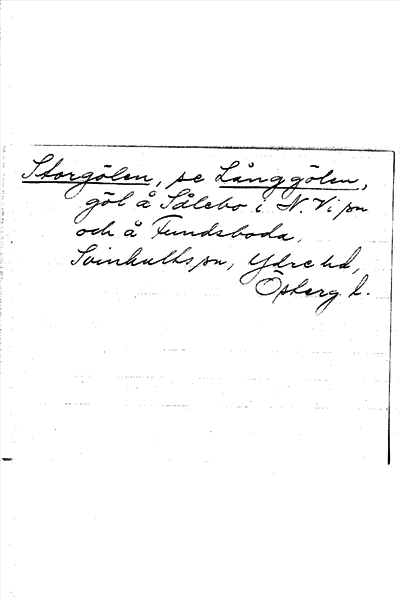 Storgölen, se Långgölen,
göl å Sålebo i N. Vi sn
och å Fundsboda,
Svinhults sn, Ydre hd,
Österg. l.